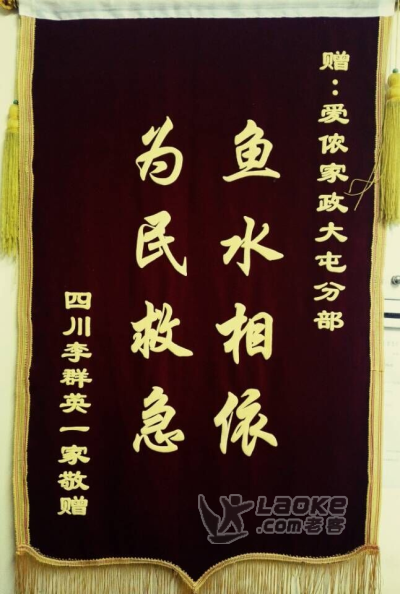 赠：爱侬家政大屯分部
鱼水相依
为民救急
四川李群英一家敬赠
LAOKE
.com老客